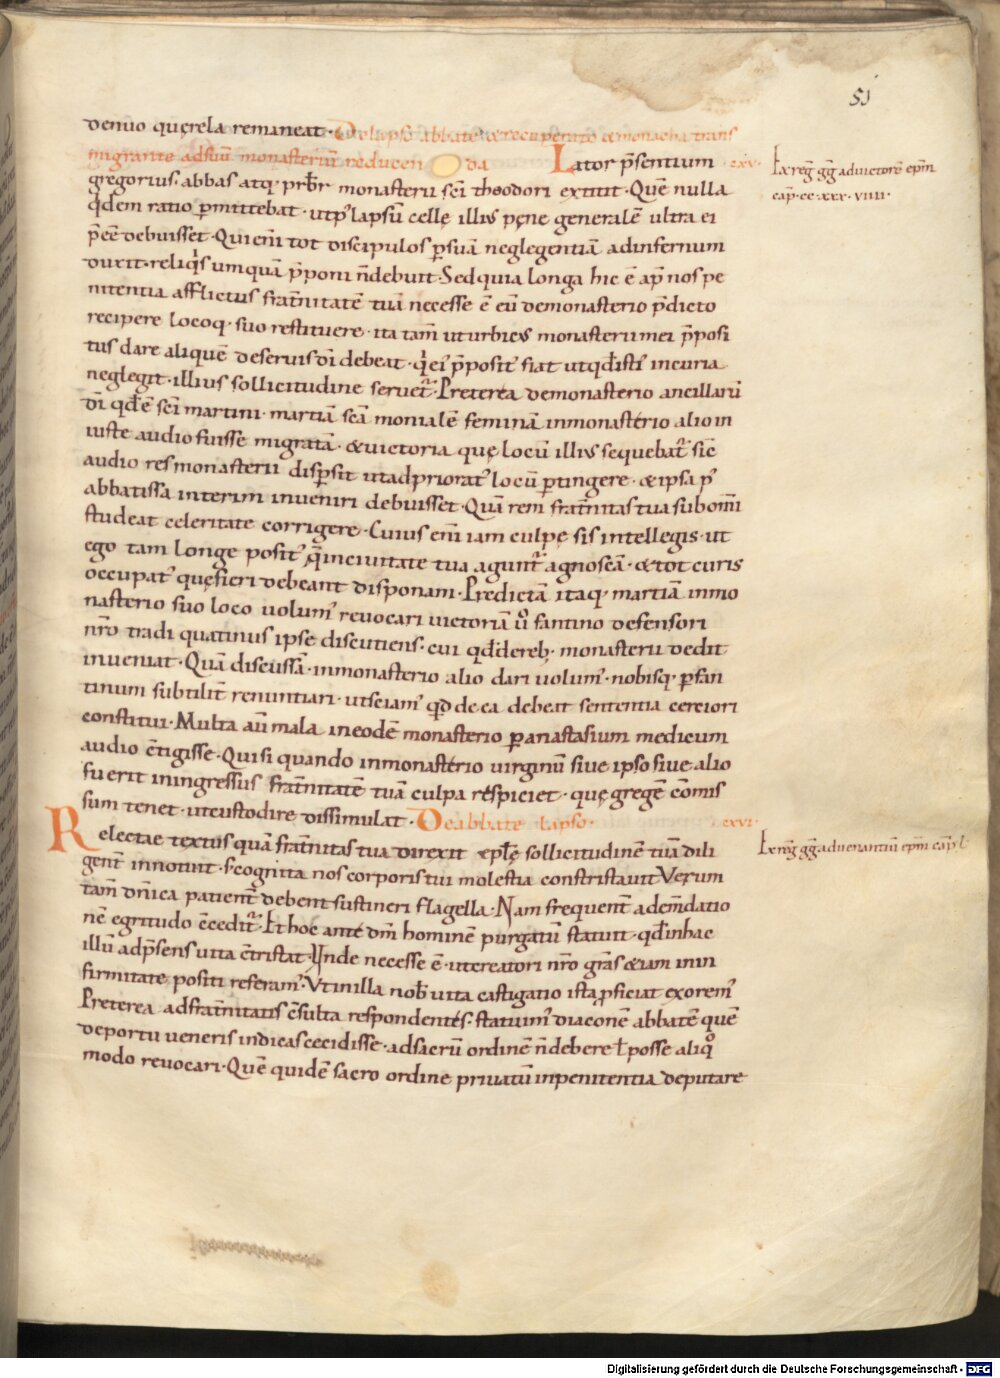 51
denuo querela remaneat · De lapso abbate & recuperato & monacha trans
migrante ad suũ monasteriũ reducenda Lator p̃sentium cxv·
Ex reg̃ gg̃ ad victorẽ ep̃m
cap̃ · cc · xxx · viiii ·
gregorius · abbas atq; pr̃br monasterii sc̃i theodori extitit · Quẽ nulla
qdem ratio pmittebat · ut p̃ lapsũ cellę illius pęne generalẽ ultra ei
p̃eẽ debuisset · Qui eni tot discipulos p suã neglegentiã ad infernum
duxit · reliqis umquã p̃poni ñ debuit · Sed quia longa hic ẽ ap̃ nos pe
nitentia afflictus frat̃nitatẽ tuã necesse ẽ eũ de monasterio p̃dicto
recipere locoq; suo restituere · ita tam̃ ut urbicus monasterii mei p̃posi
tus dare aliquẽ de servis dĩ debeat · qi ei p̃posit᾽ fiat ut qd isti᾽ incuria
neglegit · illius sollicitudine seruet᷑ · Pręterea de monasterio ancillarũ
dĩ qd ẽ sc̃i martini · martiã sc̃ã monialẽ feminã in monasterio alio in
iuste audio fuisse migratã · & uictoria quę locũ illius sequebat᷑ sic̃
audio res monasterii dispsit ut ad priorat᾽ locũ ptingere · & ipsa p᾽
abbatissa interim inveniri debuisset · Quã rem frat̃nitas tua sub om̃i
studeat celeritate corrigere · Cuius eni iam culpę sis intellegis · ut
ego tam longe posit᾽ q̃ in civitate tua agunt᷑ agnoscã · & tot curis
occupat᾽ quę fieri debeant disponam · Prędictã itaq; martiã in mo
nasterio suo loco volum᾽ revocari victoriã u̾ fantino defensori
nr̃o tradi quatinus ipse discutiens · cui qd de reb; monasterii dedit
inueniat · Quã discussã · in monasterio alio dari uolum᾽ · nobisq; p fan
tinum subtilit̃ renuntiari · ut sciam᾽ qd de ea debeat sententia cerciori
constitui · Multa aũ mala in eodẽ monasterio p anastasium medicum
audio c̃tigisse · Qui si quando in monasterio virginũ sive ipso sive alio
fuerit in ingressus frat̃nitatẽ tuã culpa respiciet · quę gregẽ c̃mis
sum tenet · ut custodire dissimulat · De abbate lapso · cxvi·
Ex reg̃ gg̃ ad uenantiũ ep̃m cap̃ l
Relectae textus quã frat̃nitas tua direxit ep̃lę sollicitudinẽ tuã dili
gent̃ innotuit · s; cognita nos corporis tui molestia constristavit Verum
tam̃ dn̄ica patient̃ debent sustineri flagella · Nam frequent̃ a dem̃datio
nẽ egritudo c̃cedit᷑ · Et hoc ante dm̃ hominẽ purgatũ statuit · qd in hac
illũ ad p̃sens uita c̃tristat · Unde necesse ẽ · ut creatori nr̃o gras &iam in in
firmitate positi referam᾽ · Ut in illa nob uita castigatio ista pficiat ex orem᾽
Pręterea ad frat̃nitatis c̃sulta respondentes · statuim᾽ diaconẽ abbatẽ quẽ
de portu ueneris indicas cecidisse · ad sacrũ ordinẽ ñ debere ł posse aliqo
modo revocari · Quẽ quidẽ sacro ordine privatũ in penitentia deputare
Digitalisierung gefördert durch die Deutsche Forschungsgemeinschaft · DFG